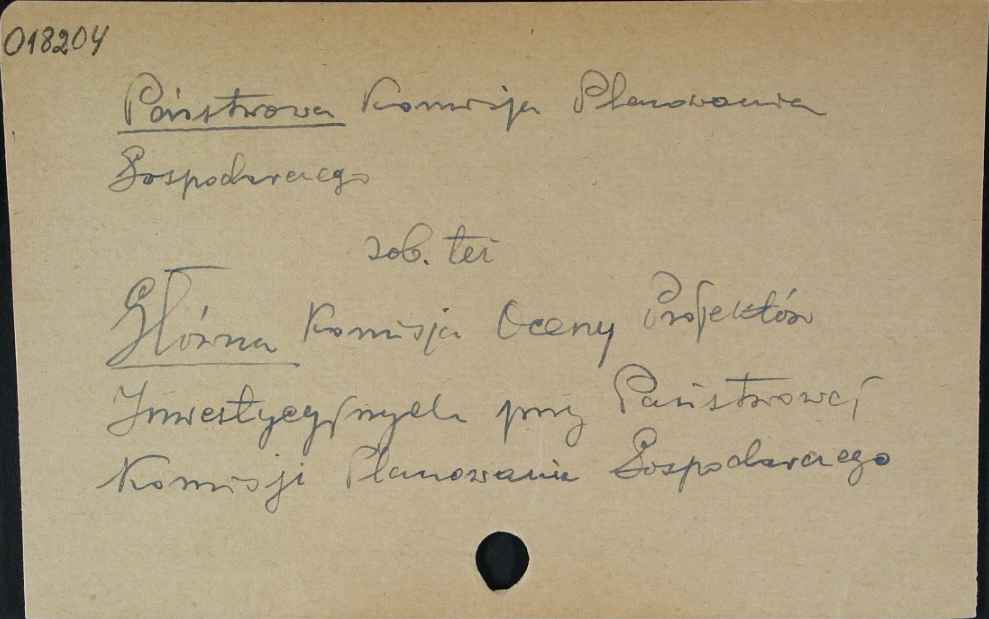 018204
Państwowa Komisja Planowania
Gospodarczego
zob. też
Główna Komisja Oceny Projektów
Inwestycyjnych przy Państwowej
Komisji Planowania Gospodarczego